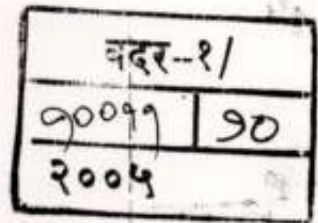 वदर--१/
१००११ ७०
२००५